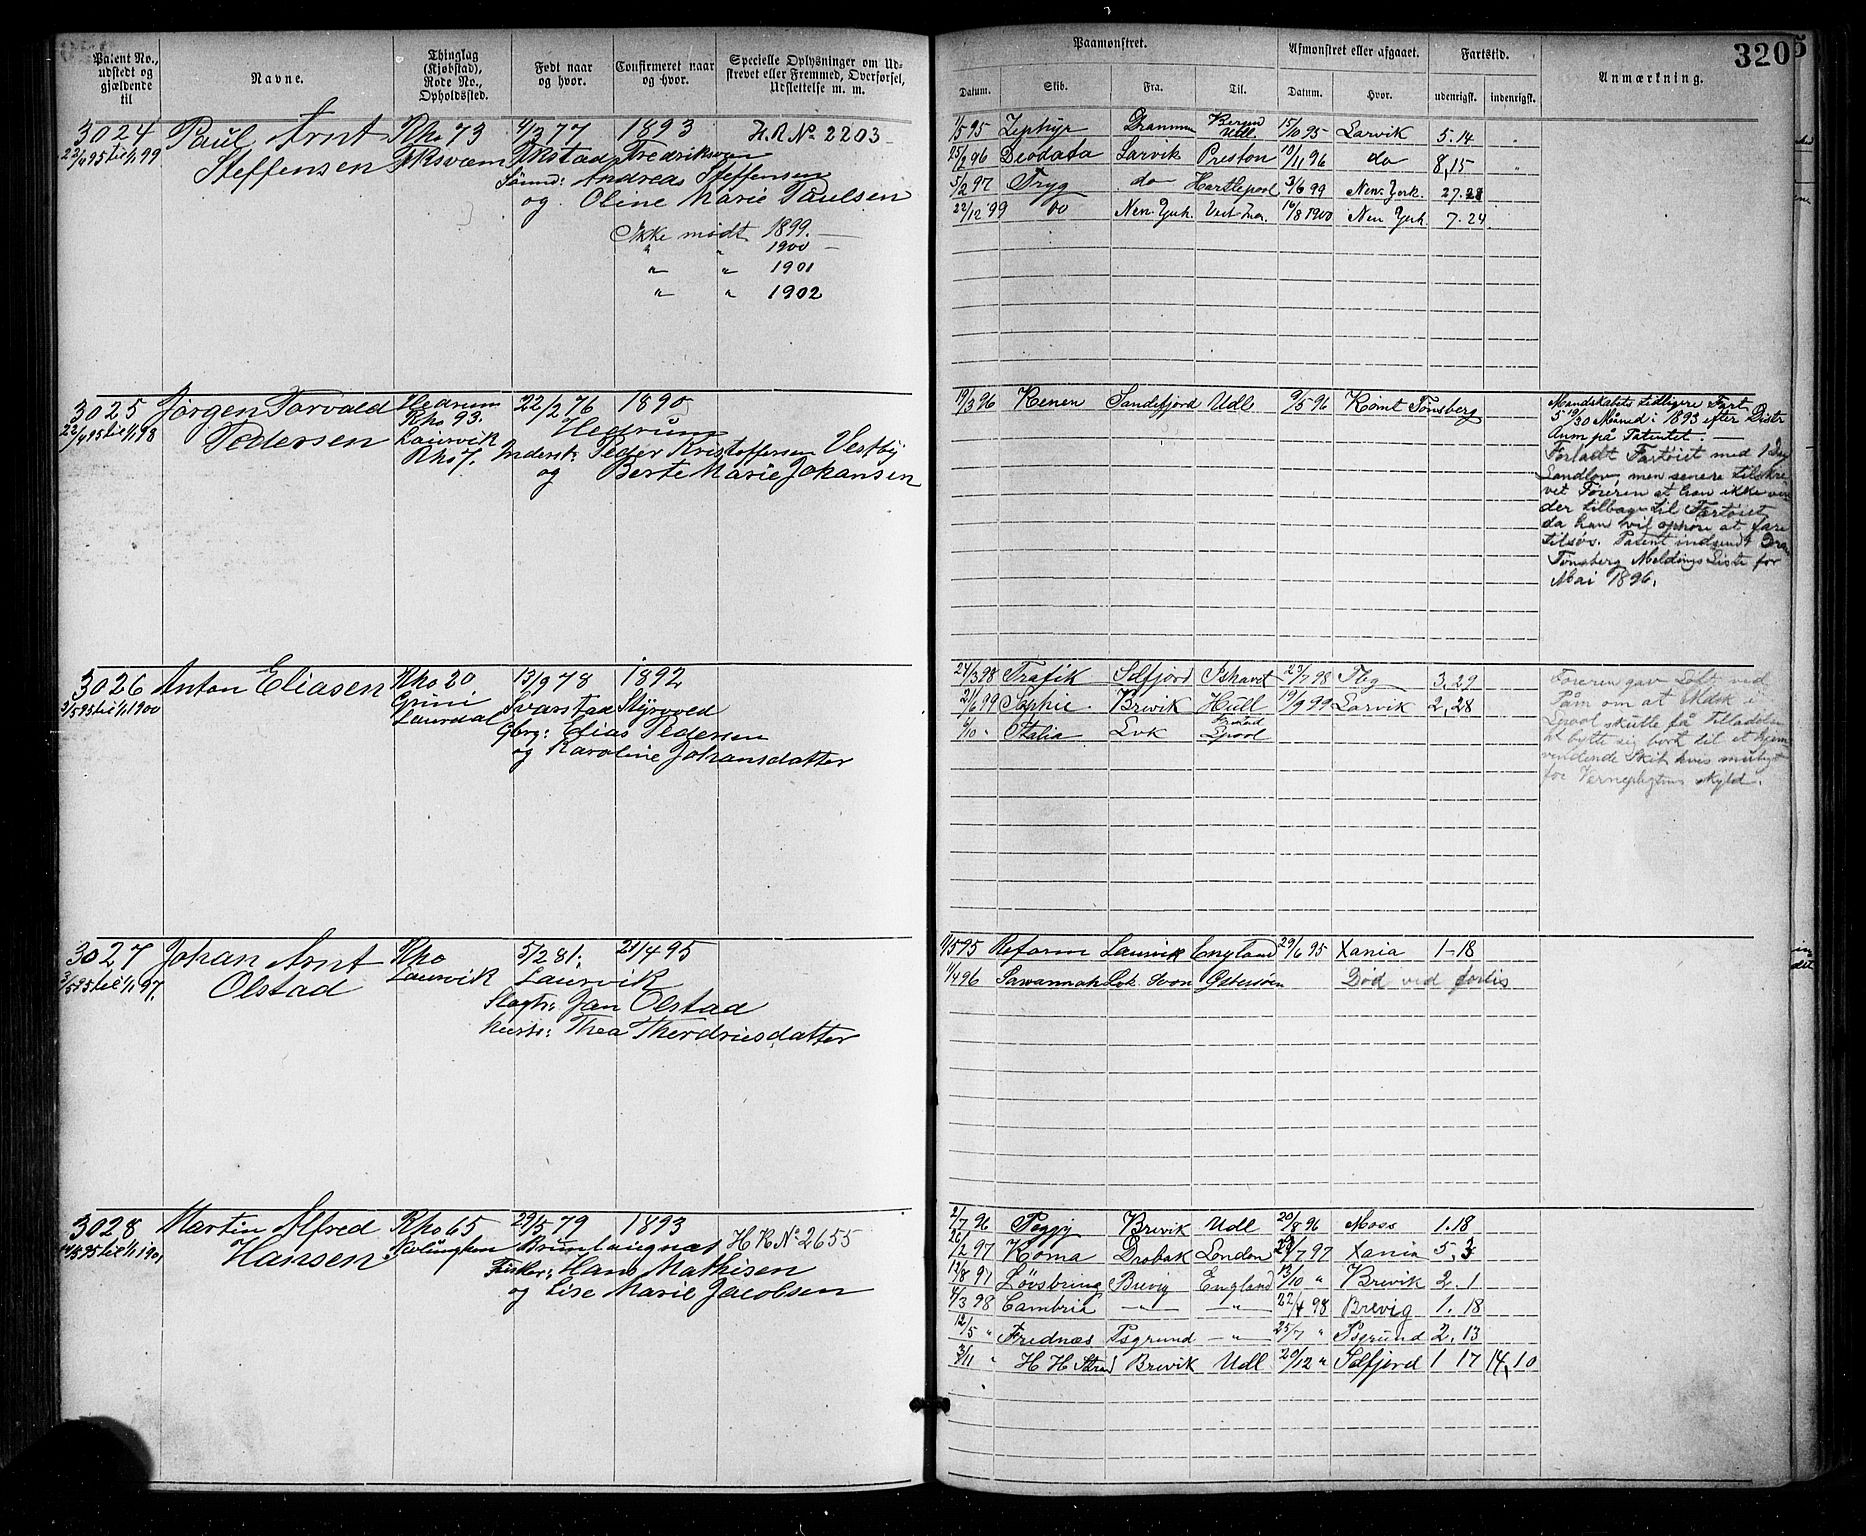 Patent No., udstedt og gjældende til
Navne.
Thinglag (Kjøbstad), Rode No., Opholdssted.
Født naar og hvor.
Confirmeret naar og hvor.
Specielle Oplysninger om Udskrevet eller Fremmed, Overførsel, Udslettelse m. m.
3024 Paul Arnt Rho 73 4/3 77 1893 H.R No 2203
22/4 95 til 1/1 99 Steffensen FRsværn Fredriksværn
Sømd: Andreas Steffensen
og Oline Marie Paulsen
Ikke mødt 1899. —
" " 1900 —
" " 1901
" " 1902
3025 Jørgen Torvald Hedrum 22/2 76 1890
22/4 95 til 1/1 98 Pedersen Rho 93. Hedrum
Laurvik
Rho 7. Inderst: Peder Kristoffersen Vestby
og Berte Marie Johansen
3026 Anton Eliasen Rho 20 13/9 78 1892
3/5 95 til 1/1 1900 Svarstad Styrvold
Laurdal Gbrg: Elias Pedersen
og Karoline Johansdatter
3027 Johan Arnt Rho 5/2 81. 21/4 95
3/5 95 til 1/1 97. Olstad Laurvik Laurvik
Slagtr: Jan Olstad
hustr: Thea Therdriesdatter
3028 Martin Alfred Rho 65 29/5 79 1893 H R No 2655
Hansen Brunlangnæs
Fisker: Hans Mathisen
og Lise Marie Jacobsen
3205
Paamønstret.
Afmønstret eller afgaaet.
Fartstid.
Anmærkning.
Datum. Skib. Fra. Til. Datum. Hvor. udenrigsk. indenrigsk.
1/5 95 Zephyr Drammen Bergen Udl. 15/10 95 Larvik 5.14 "
25/2 96 Deodata Larvik Preston 19/11 96 do 8,15 "
5/2 97 Tryg do Hartlepool 3/6 99 New-York 27.28
22/12 99 do New-York 16/8 1900 New York 7.24
19/3 96 Kenen Sandefjord Udl 9/5 96 Rømt Tønsberg
Mandskabets tidligere Fart
5 19/30 Måned i 1893 efter Distr
Anm på Patentet. —
Forladt Fartøiet med 1 Dag
Landlov, men senere tilskre
vet Føreren at han ikke ven
der tilbage til Fartøiet
da han vil ophøre at fare
tilsøs. Patent indsendt Dram
Tønsberg Meldings Liste for
Mai 1896.
24/3 98 Trafik Selfjord Ishavet 23/7 98 Tbg 3,29
2/6 99 Sophie Brevik Hull 19/9 99 Larvik 2,28
6/10 " Italia Lvk Lpool
Føreren gav Løfte ved
Påm om at Mdsk i
Lpool skulle få Tilladelse
at bytte sig bort til et hjem
vendende Skib hvis muligt
for Vernepligtens skyld.
11/5 95 Reform Laurvik England 29/6 95 Xania 1-18
11/4 96 Savannah Lvk Østersøen Død ved forlis
2/7 96 Peggy Brevik Udl 20/8 96 Moss 1.18
26/2 97 Roma Drøbak London 28/7 97 Xania 5,3
12/8 97 Løvspring Brevig England 13/10 " Brevik 2.1
4/3 98 Cambria —"— —"— 22/4 98 Brevig 1.18
12/5 " Frednæs Psgrund —"— 25/7 " Psgrund 2,13
3/11 " H H Brevik Udl 20/12 " Selfjord 1 17 14,10